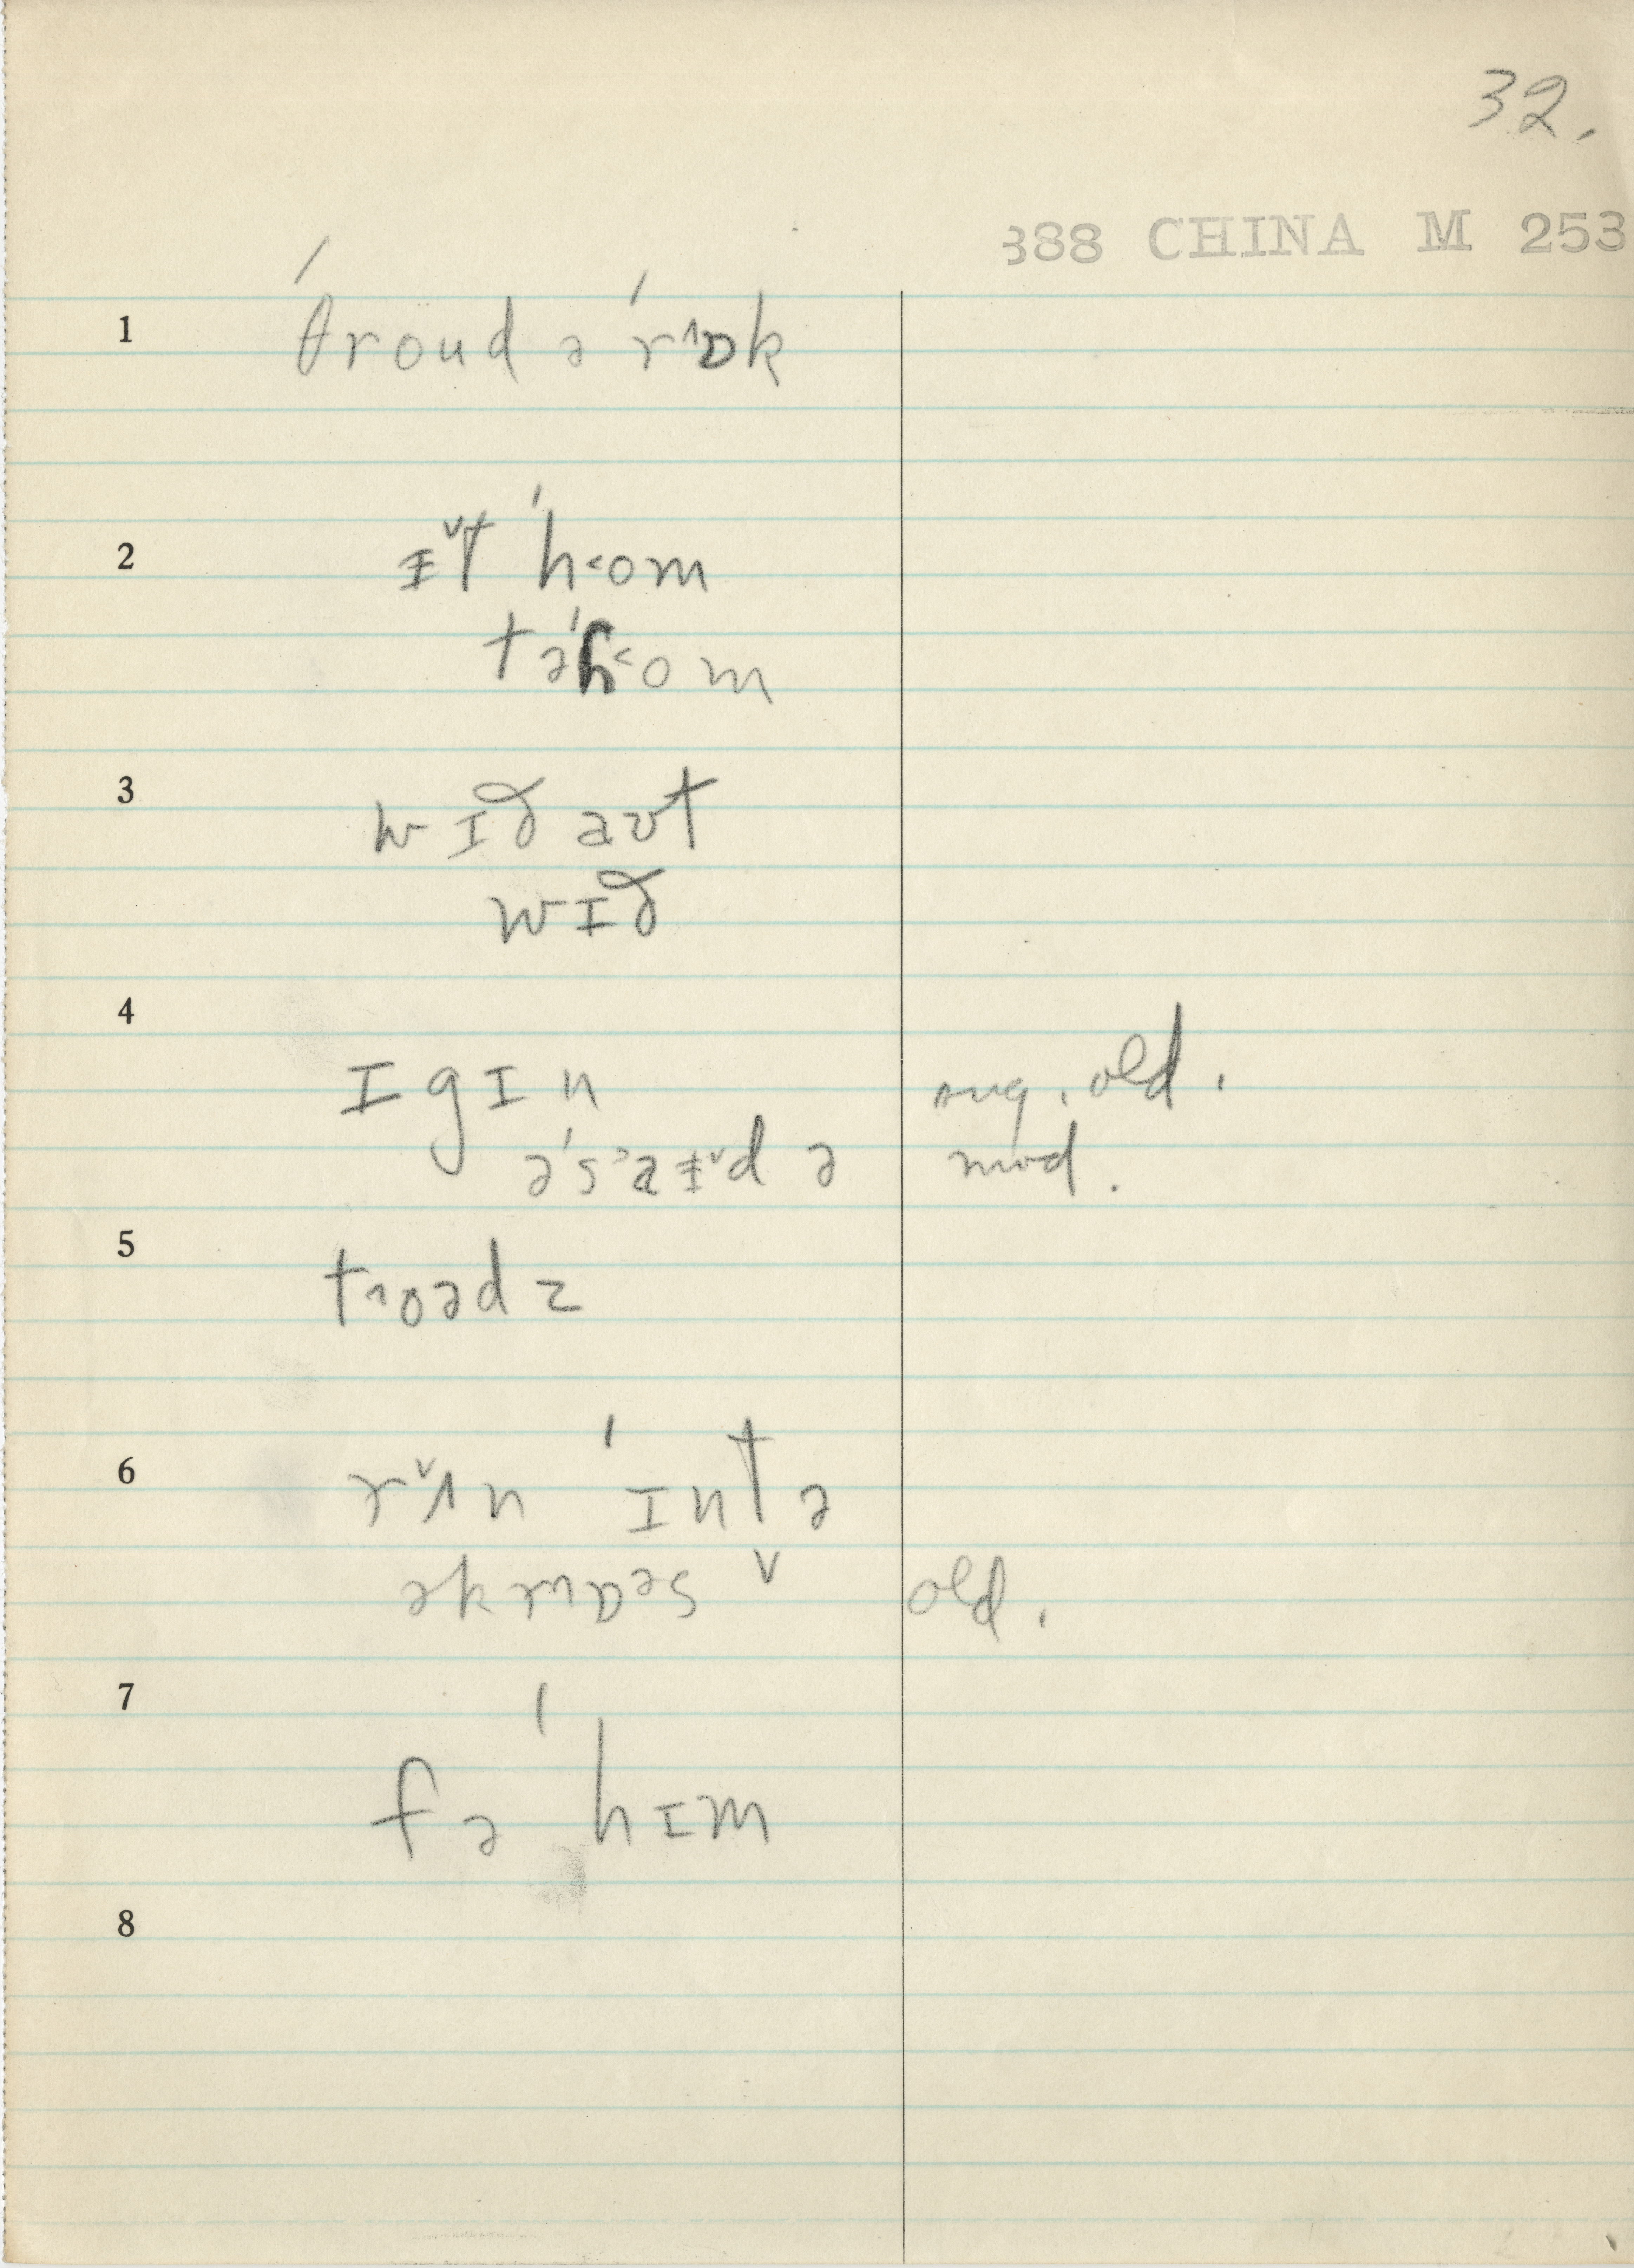 32.
388 CHINA M 253
1 ˈθroud ə ˈr˄ɒk
2 ɨ˅t ˈh˂om
tə ˈh˂om
3 wɪð aʊt
wɪð
4 ɪgɪn sug. old.
əˈs˃aɨ˅d ə mod.
5 t˄oədz
6 r˅ʌn ˈɪntə
əkr˄ɒəs ˅ old.
7 fə ˈhɪm
8